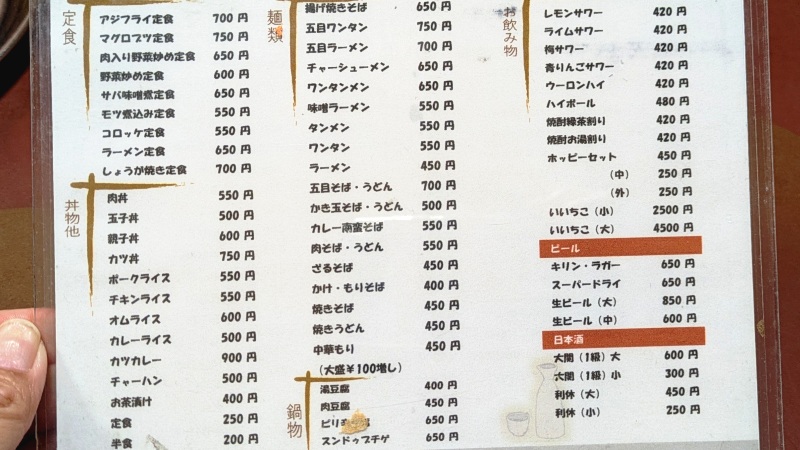 定食
アジフライ定食 700 円
マグロブツ定食 750 円
肉入り野菜炒め定食 650 円
野菜炒め定食 600 円
サバ味噌煮定食 650 円
モツ煮込み定食 550 円
コロッケ定食 550 円
ラーメン定食 650 円
しょうが焼き定食 700 円
丼物他
肉丼 550 円
玉子丼 500 円
親子丼 600 円
カツ丼 750 円
ポークライス 550 円
チキンライス 550 円
オムライス 600 円
カレーライス 500 円
カツカレー 900 円
チャーハン 500 円
お茶漬け 400 円
定食 250 円
半食 200 円
麺類
揚げ焼きそば 650 円
五目ワンタン 750 円
五目ラーメン 700 円
チャーシューメン 650 円
ワンタンメン 650 円
味噌ラーメン 550 円
タンメン 550 円
ワンタン 550 円
ラーメン 450 円
五目そば・うどん 700 円
かき玉そば・うどん 500 円
カレー南蛮そば 550 円
肉そば・うどん 550 円
ざるそば 450 円
かけ・もりそば 400 円
焼きそば 450 円
焼きうどん 450 円
中華もり 450 円
(大盛¥100増し)
鍋物
湯豆腐 400 円
肉豆腐 450 円
ピリ 650 円
スンドゥブチゲ 650 円
お飲み物
レモンサワー 420 円
ライムサワー 420 円
梅サワー 420 円
青りんごサワー 420 円
ウーロンハイ 420 円
ハイボール 480 円
焼酎緑茶割り 420 円
焼酎お湯割り 420 円
ホッピーセット 450 円
(中) 250 円
(外) 250 円
いいちこ (小) 2500 円
いいちこ (大) 4500 円
ビール
キリン・ラガー 650 円
スーパードライ 650 円
生ビール (大) 850 円
生ビール (中) 600 円
日本酒
大関 (1級) 大 600 円
大関 (1級) 小 300 円
利休 (大) 450 円
利休 (小) 250 円